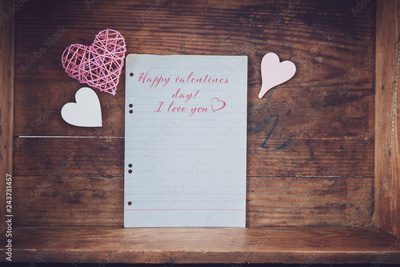 Happy valentines
day!
I love you
Adobe Stock | #243731457